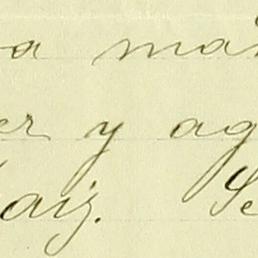 a má
er y ag
aiz. Se